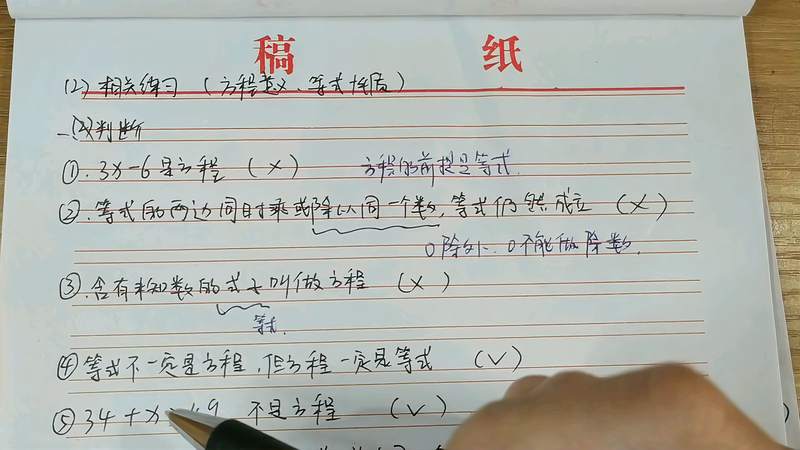 稿 纸
(2) 相关练习 (方程意义、等式性质)
(2)判断
①. 3x-6是方程 (×) 方程的前提是等式.
②. 等式的两边同时乘或除以同一个数, 等式仍然成立 (×)
0除外. 0不能做除数.
③. 含有未知数的式子叫做方程 (×)
等式.
④ 等式不一定是方程, 但方程一定是等式 (√)
⑤ 34+x 49 不是方程 (√)